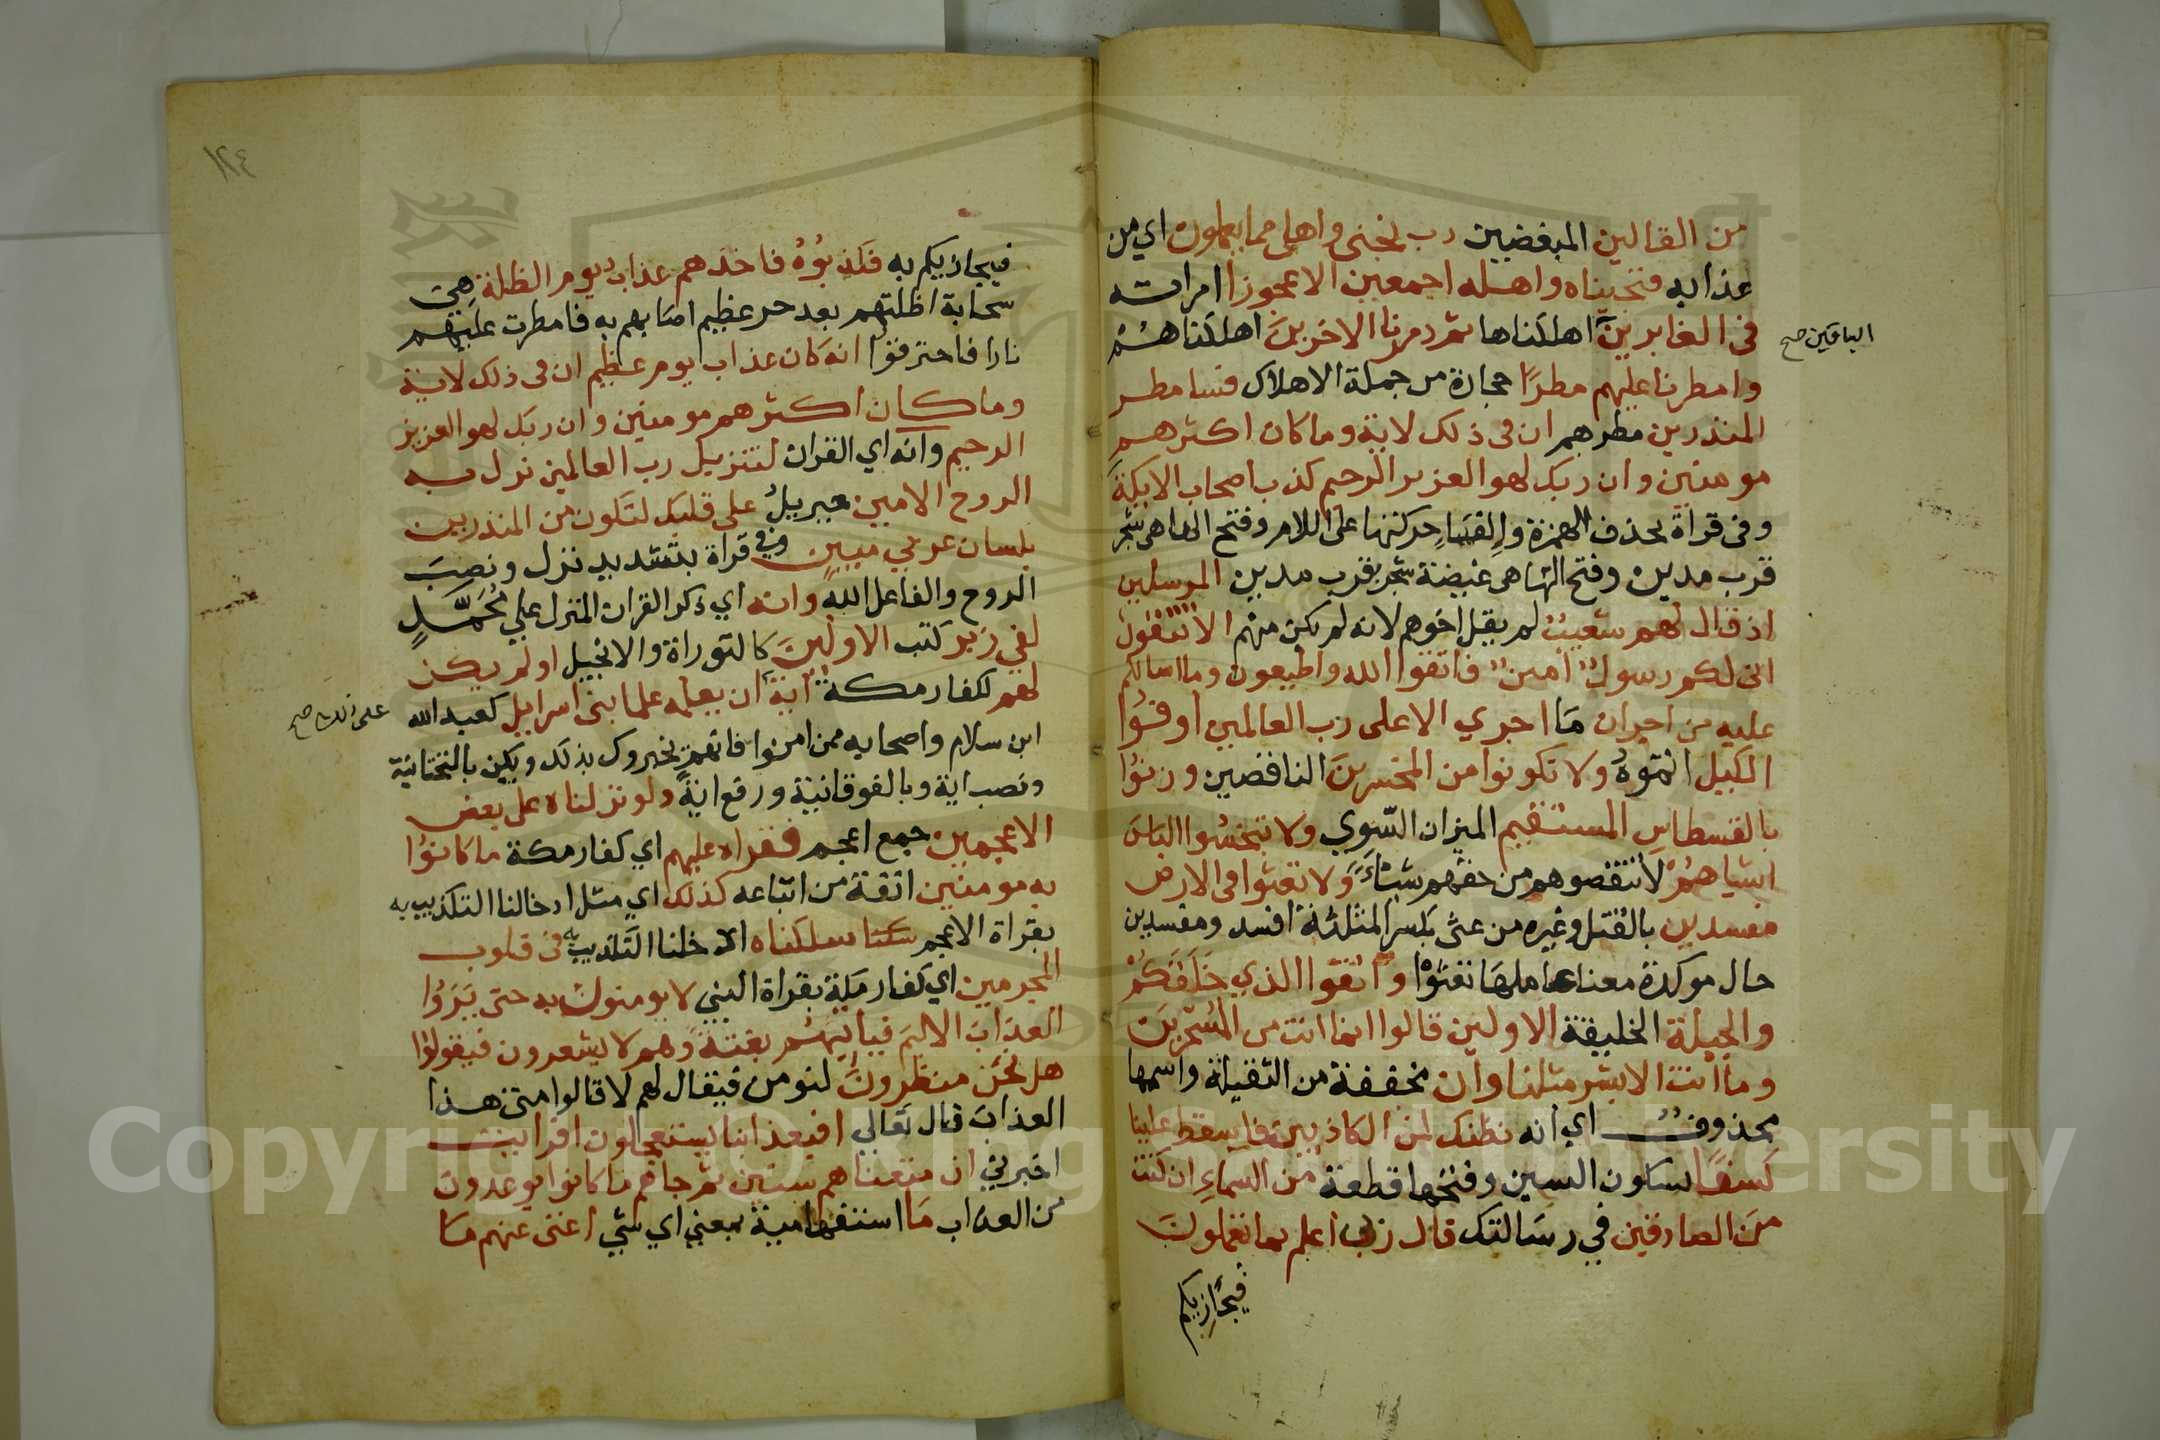 من القالين المبغضين رب نجنى واهلى مما يعملون اي من
عذابه فنجيناه واهله اجمعين الا عجوزا امراته
فى الغابرين اهلكناها ثم دمرنا الاخرين اهلكناهم
الباقين صح
وامطرنا عليهم مطرا حجارة من جملة الاهلاك فسا مطر
المنذرين مطرهم ان فى ذلك لاية وما كان اكثرهم
مومنين وان ربك لهو العزيز الرحيم كذب اصحاب الايكة
وفى قراة بحذف الهمزة والقاء حركتها على اللام وفتح الها هى شجر
قرب مدين وفتح الها هى غيضة شجر بقرب مدين المرسلين
اذ قال لهم شعيب لم يقل اخوهم لانه لم يكن منهم الا تتقون
انى لكم رسول امين فاتقوا الله واطيعون وما اسالكم
عليه من اجر ان ما اجري الا على رب العالمين اوفوا
الكيل اتموه ولا تكونوا من المخسرين الناقصين وزنوا
بالقسطاس المستقيم الميزان السوي ولا تبخسوا الناس
اشياهم لا تنقصوهم من حقهم شيا ولا تعثوا فى الارض
مفسدين بالقتل وغيره من عثى بكسر المثلثة افسد ومفسدين
حال موكدة معنا عاملها تعثوا واتقوا الذي خلقكم
والجبلة الخليقة الاولين قالوا انما انت من المسحرين
وما انت الا بشر مثلنا وان مخففة من الثقيلة واسمها
محذوف اي انه نظنك لمن الكاذبين فاسقط علينا
كسفا بسكون السين وفتحها قطعة من السماء ان كنت
من الصادقين في رسالتك قال ربى اعلم بما تعملون
فيجازيكم
١٢٤
فيجازيكم به فكذبوه فاخذهم عذاب يوم الظلة هى
سحابة اظلتهم بعد حر عظيم اصابهم به فامطرت عليهم
نارا فاحترقوا انه كان عذاب يوم عظيم ان فى ذلك لاية
وما كان اكثرهم مومنين وان ربك لهو العزيز
الرحيم وانه اي القران لتنزيل رب العالمين نزل به
الروح الامين جبريل على قلبك لتكون من المنذرين
بلسان عربي مبين وفي قراة بتشديد نزل ونصب
الروح والفاعل الله وانه اي ذكر القران المنزل على محمد
لفي زبر كتب الاولين كالتوراة والانجيل اولم يكن
لهم لكفار مكة اية ان يعلمه علما بنى اسرايل كعبد الله
على ذلك صح
ابن سلام واصحابه ممن امنوا فانهم يخبروك بذلك ويكن بالتحتانية
ونصب اية وبالفوقانية ورفع اية ولو نزلناه على بعض
الاعجمين جمع اعجم فقراه عليهم اي كفار مكة ما كانوا
به مومنين انفة من اتباعه كذلك اي مثل ادخالنا التكذيب به
بقراة الاعجم سلكناه ادخلنا التكذيب به فى قلوب
المجرمين اي كفار مكة بقراة النبي لا يومنون به حتى يروا
العذاب الاليم فياتيهم بغتة وهم لا يشعرون فيقولوا
هل نحن منظرون لنومن فيقال لهم لا قالوا متى هذا
العذاب قال تعالى افبعذابنا يستعجلون افرايت
اخبرني ان متعناهم سنين ثم جاهم ما كانوا يوعدون
من العذاب ما استفهامية بمعنى اي شي اغنى عنهم ما
Copyright © King Saud University